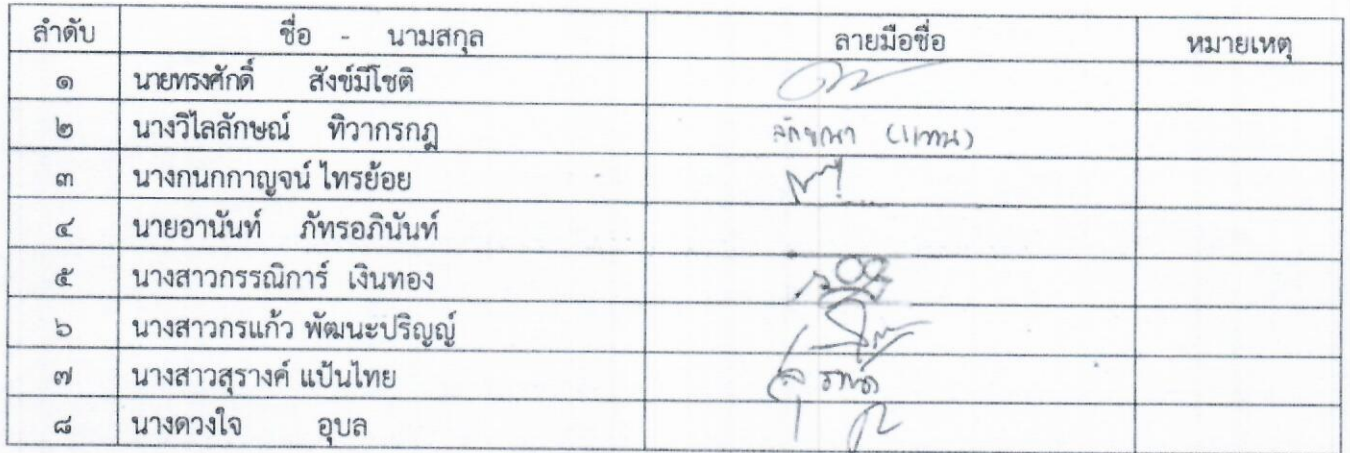 ลำดับ ชื่อ - นามสกุล ลายมือชื่อ หมายเหตุ
๑ นายทรงศักดิ์ สังข์มีโชติ
๒ นางวิไลลักษณ์ ทิวากรกฎ ลักษณา (แทน)
๓ นางกนกกาญจน์ ไทรย้อย
๔ นายอานันท์ ภัทรอภินันท์
๕ นางสาวกรรณิการ์ เงินทอง
๖ นางสาวกรแก้ว พัฒนะปริญญ์
๗ นางสาวสุรางค์ แป้นไทย
๘ นางดวงใจ อุบล